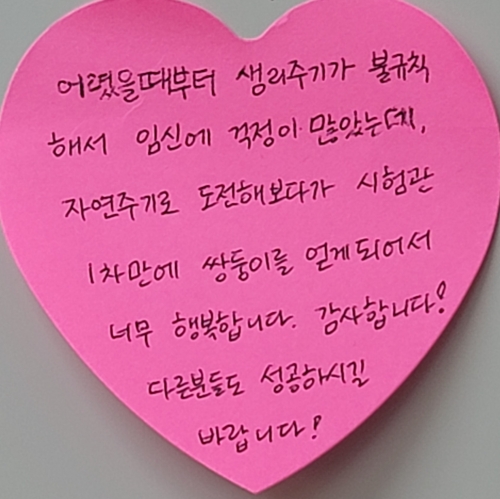 어렸을때부터 생리주기가 불규칙
해서 임신에 걱정이 많았는데,
자연주기로 도전해보다가 시험관
1차만에 쌍둥이를 얻게되어서
너무 행복합니다. 감사합니다!
다른분들도 성공하시길
바랍니다!